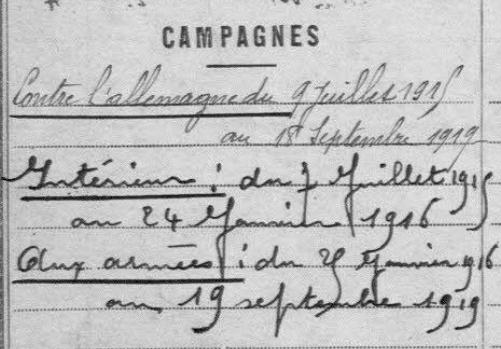 CAMPAGNES
Contre l'allemagne du 9 Juillet 1915
au 18 Septembre 1919
Intérieur : du 7 Juillet 1915
au 24 Janvier 1916
Aux armées : du 25 Janvier 1916
au 19 septembre 1919